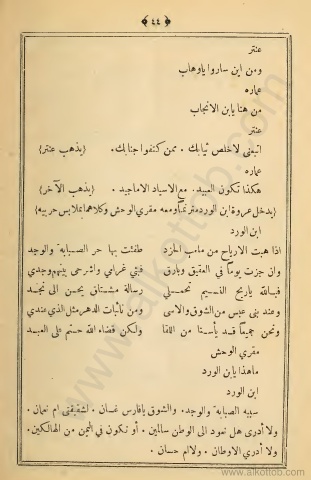 ﴿ ٤٤ ﴾
عنتر
ومن اين ساروا ياوهاب
عماره
من هنا يا ابن الانجاب
عنتر
اتبعني لاخلص ثيابك . ممن كنفوا جنابك . {يذهب عنتر}
عماره
هكذا تكون العبيد . مع الاسياد الاماجيد . {يذهب الآخر}
{يدخل عروة ابن الورد مترنماً ومعه مقري الوحش وكلاهما بملابس حربيه}
ابن الورد
اذا هبت الارياح من ملعب الجرد طفئت بها حر الصبابة والوجد
وان جزت يوماً في العقيق وبارق فبثي غرامي واشرحي بينهم وجدي
فبالله ياريح النسيم تحملي رسالة مشتاق يحن الى نجد
وعند بني عبس من الشوق والاسى ومن نائبات الدهر مثل الذي عندي
ونحن جميعاً قد يأسنا من اللقا ولكن قضاء الله حتم على العبد
مقري الوحش
ماهذا يابن الورد
ابن الورد
سببه الصبابة والوجد . والشوق يافارس غسان . لشقيقتي ام نعمان .
ولا أدري هل نعود الى الوطن سالمين . أو نكون في اليمن من الهالكين .
ولا أدري الاوطان . ولا ام حسان .
www.alkottob.com